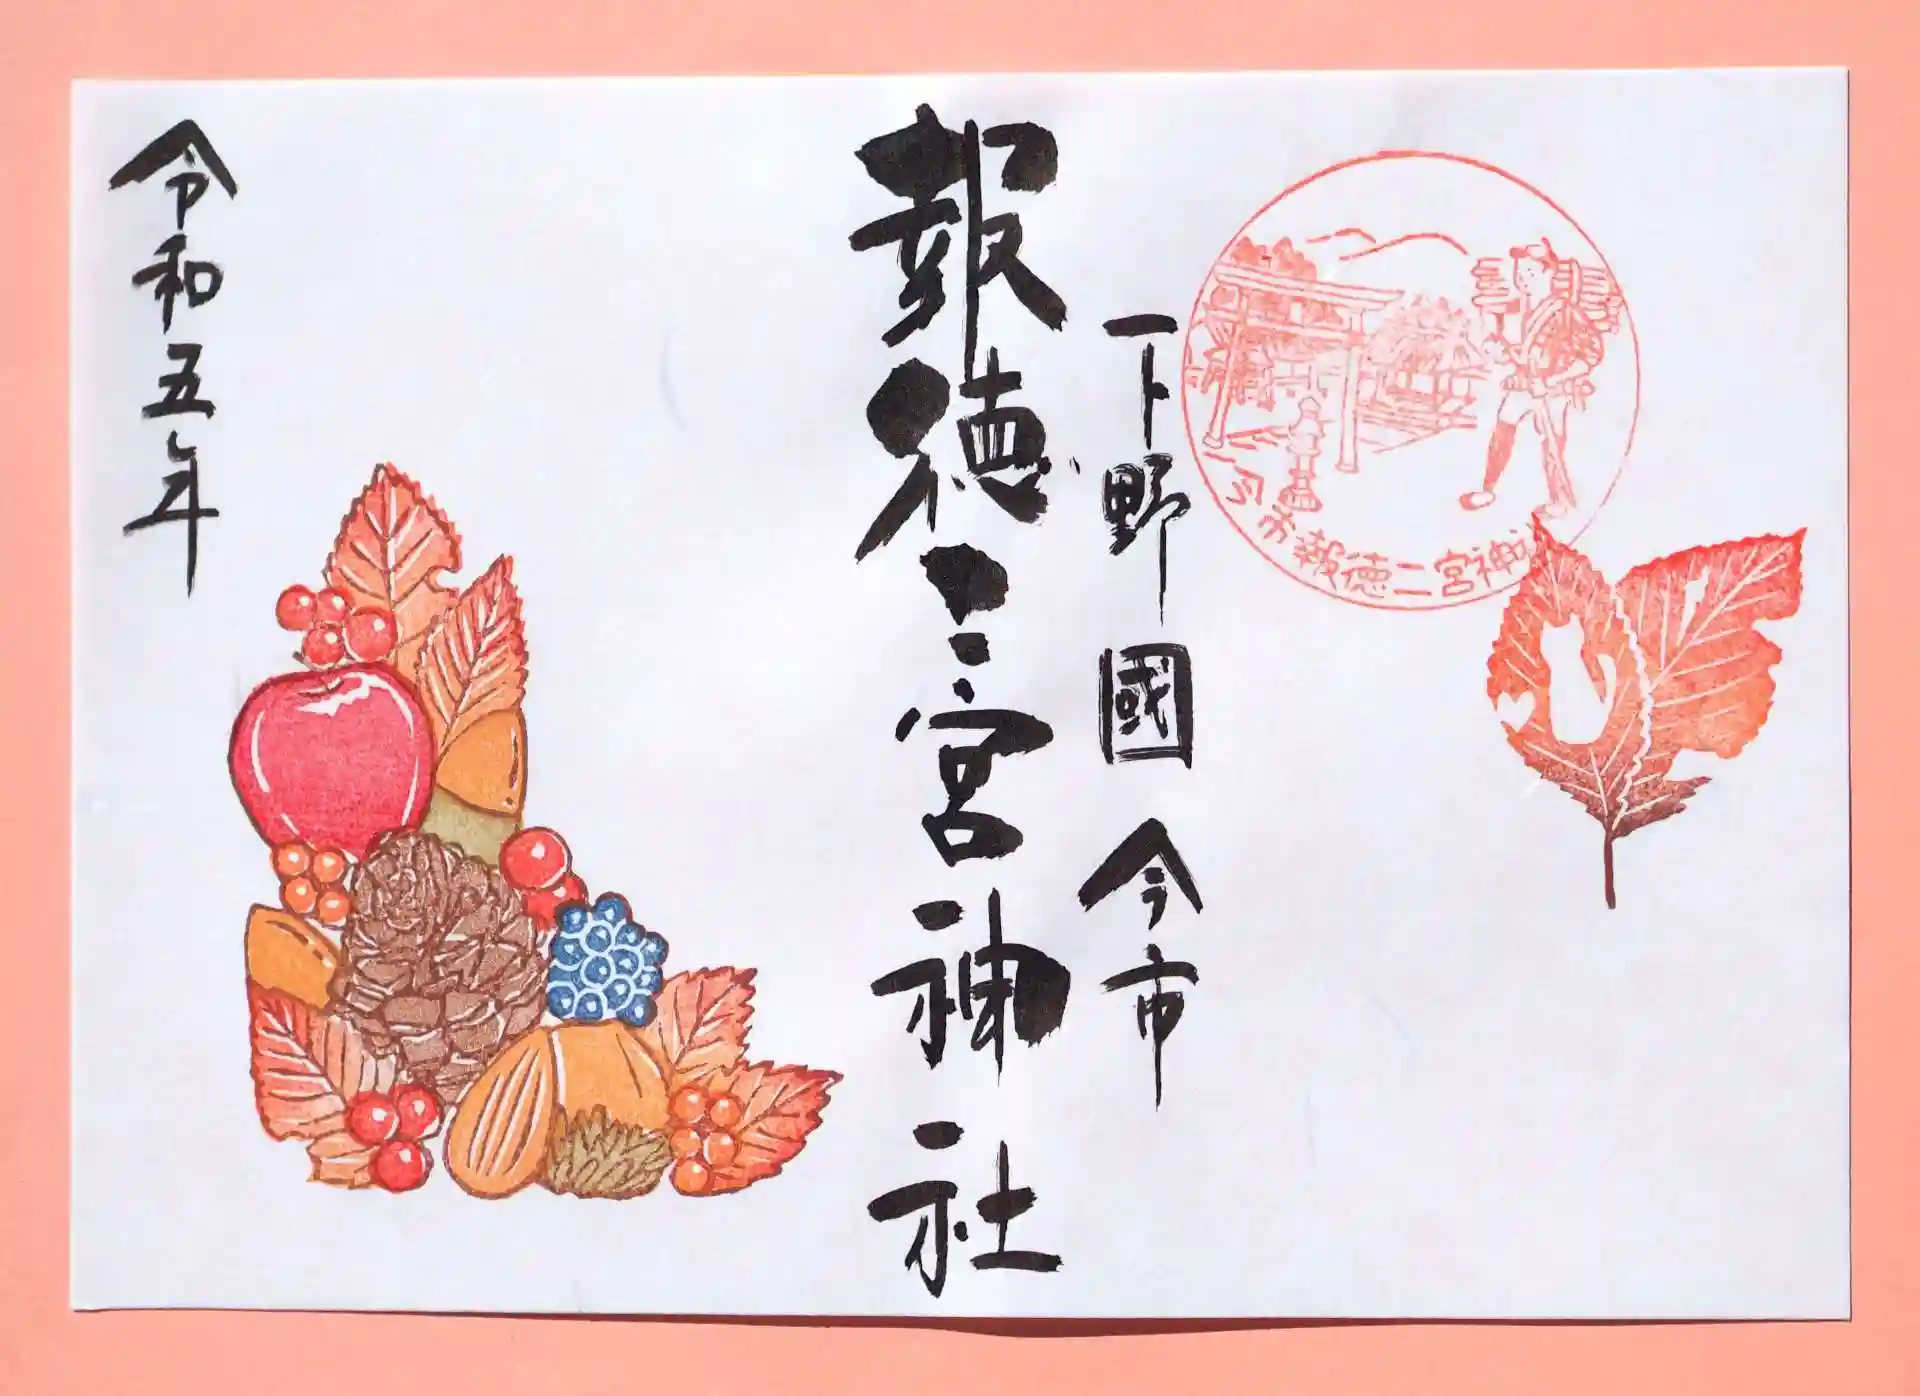 下野國 今市
報徳二宮神社
令和五年
今市報徳二宮神社